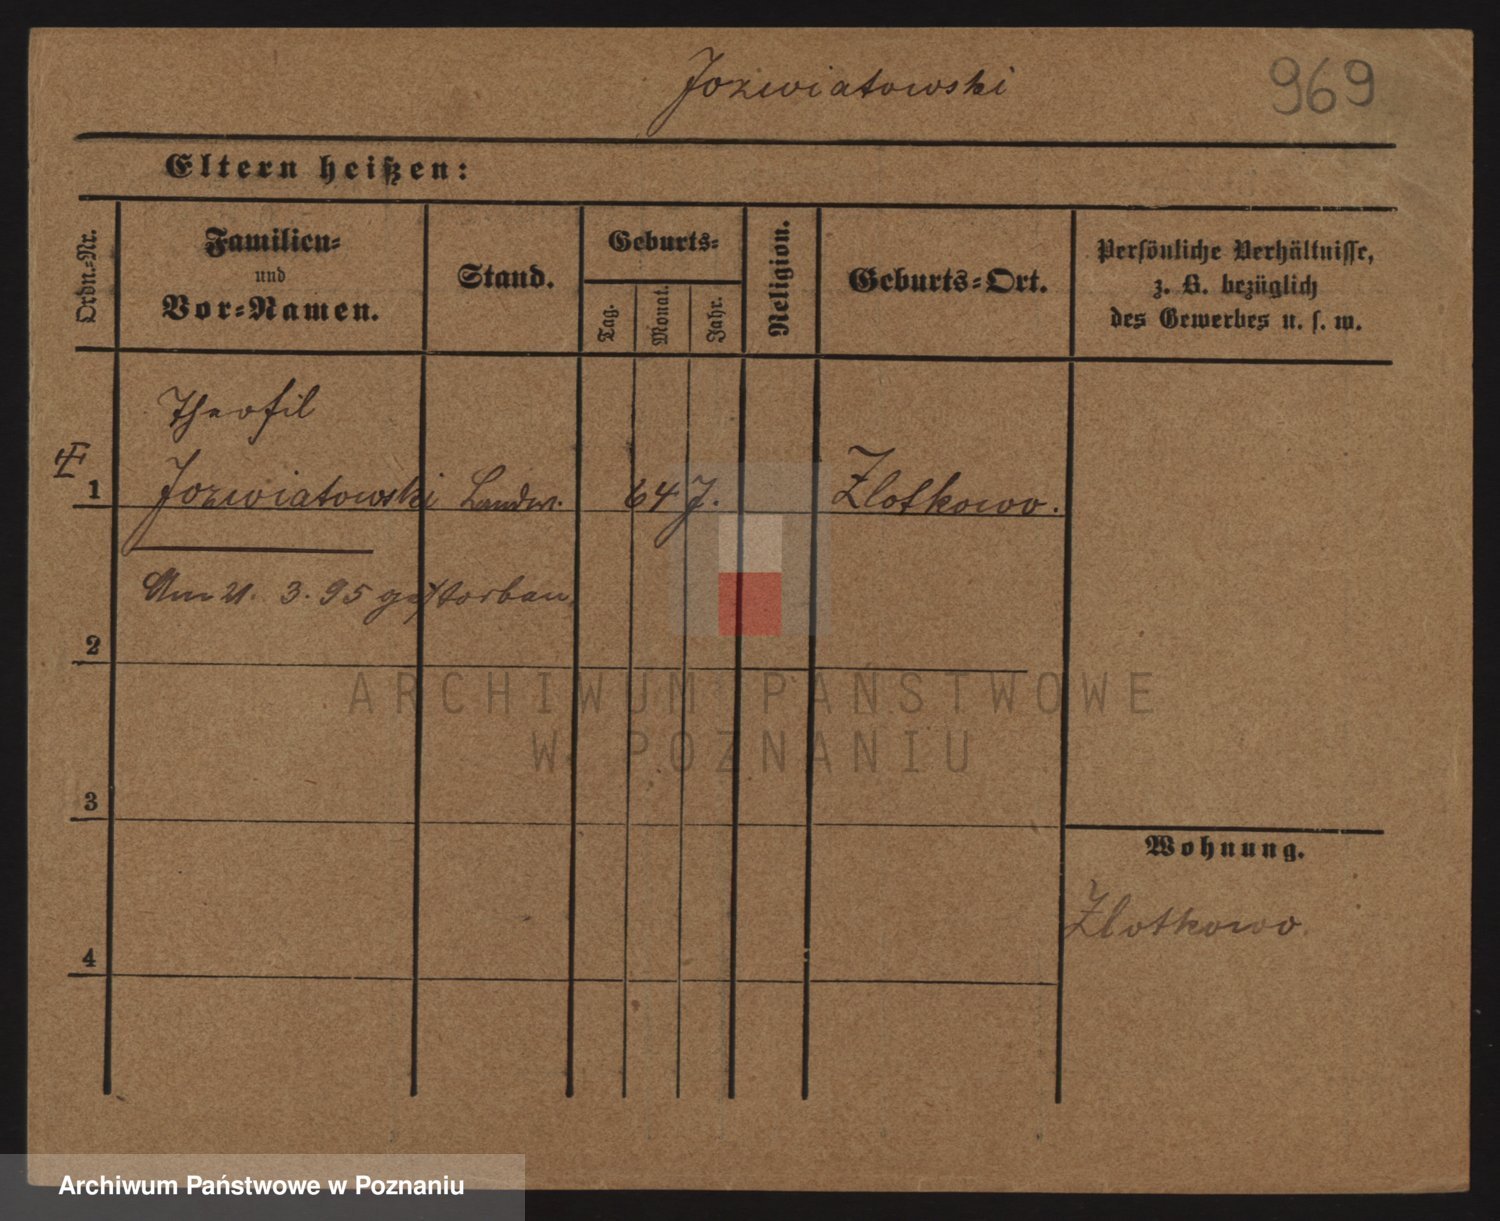 Jozwiatowski
969
Eltern heißen:
Ordn.-Nr.
Familien-
und
Vor-Namen.
Stand.
Geburts-
Tag.
Monat.
Jahr.
Religion.
Geburts-Ort.
Persönliche Verhältnisse,
z. B. bezüglich
des Gewerbes u. s. w.
Theofil
1 Jozwiatowski Landw. 64 J. Zlotkowo.
Am 21. 3. 95 gestorben
2
3
4
Wohnung.
Zlotkowo.
ARCHIWUM PAŃSTWOWE
W POZNANIU
Archiwum Państwowe w Poznaniu